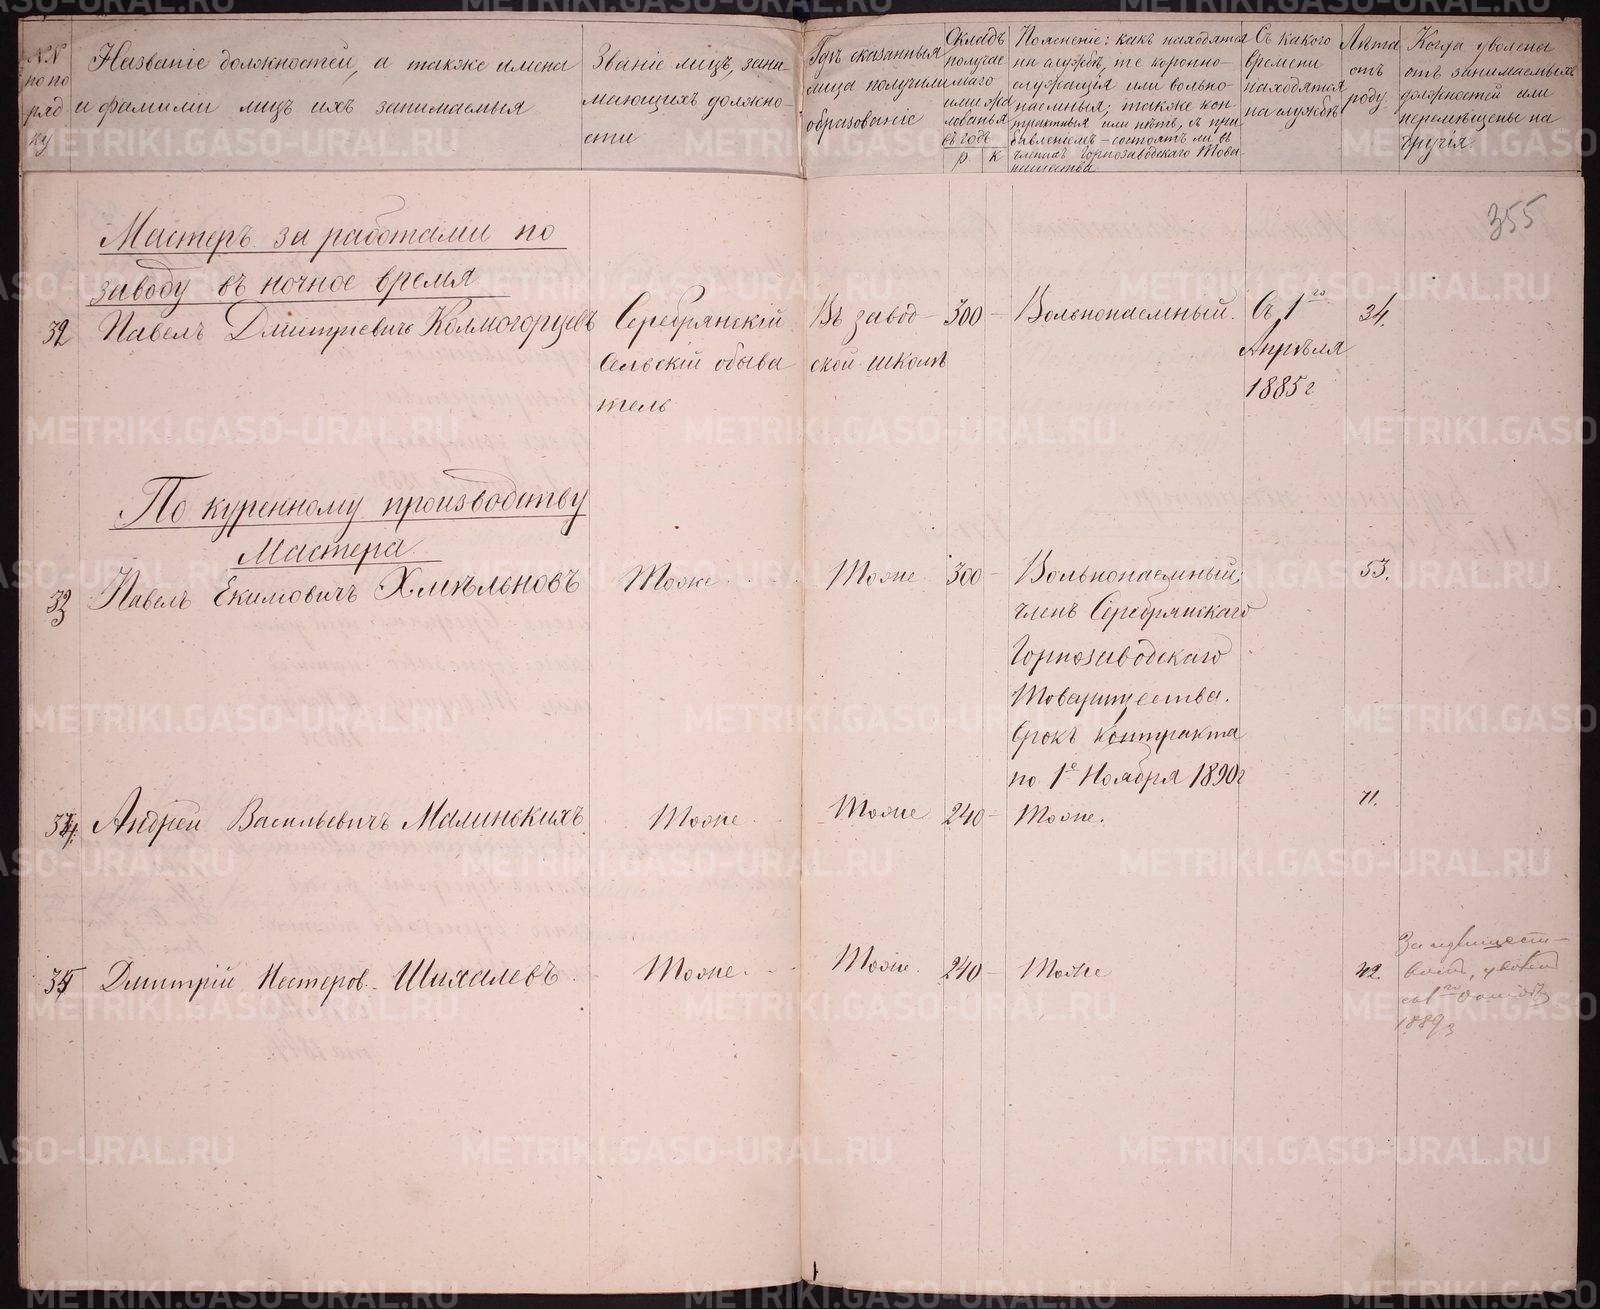 NN по по ряд ку
Названіе должностей, а также имена
и фамиліи лицъ ихъ занимаемыя
Званіе лицъ, зани
мающихъ должно-
сти
Гдѣ сказанныя
лица получили
образованіе
Окладъ
получае
маго
или жа
лованья
въ годъ
р к
Поясненіе: какъ находятся
на службѣ, те коронно-
служащія или вольно
наемныя; также кон
трактныя или нѣтъ, съ при
бавленіемъ – состоятъ ли въ
членахъ Горнозаводскаго Това
рищества
Съ какого
времени
находятся
на службѣ
Лѣта
отъ
роду
Когда уволены
отъ занимаемыхъ
должностей или
перемѣщены на
другія.
355
Мастеръ за работами по
заводу въ ночное время
32 Павелъ Дмитріевичъ Колмогорцевъ
Серебрянскій
сельскій обыва
тель
Въ завод-
ской школѣ
300 –
Вольнонаемный.
Съ 1го
Апрѣля
1885 г
34.
По куренному производству
Мастера.
33 Павелъ Екимовичъ Хмѣленовъ
Тоже
Тоже
300 –
Вольнонаемный;
членъ Серебрянскаго
Горнозаводскаго
Товарищества.
Срокъ контракта
по 1е Ноября 1890 г
53.
34. Андрей Васильевичъ Малинскихъ
Тоже
Тоже
240 –
Тоже.
71.
35 Дмитрій Нестеров. Шихалевъ
Тоже.
Тоже.
240 –
Тоже
42.
1889 г
METRIKI.GASO-URAL.RU